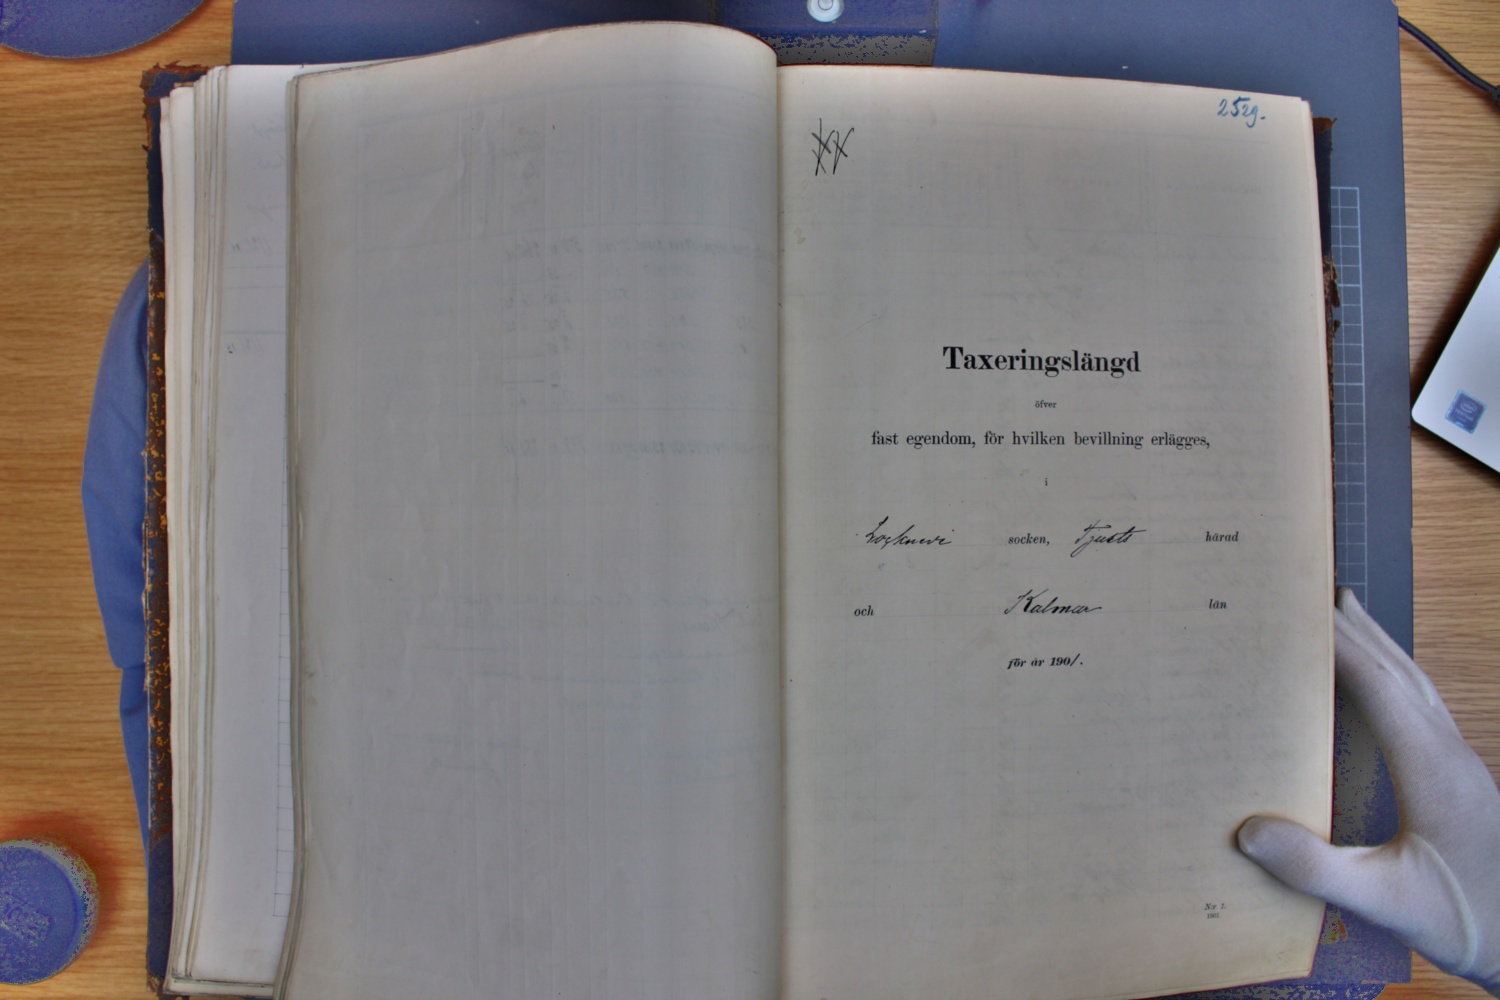 2529.
Taxeringslängd
öfver
fast egendom, för hvilken bevillning erlägges,
i
Locknevi socken, Tjusts härad
och Kalmar län
för år 1901.
N:r 1.
1901.